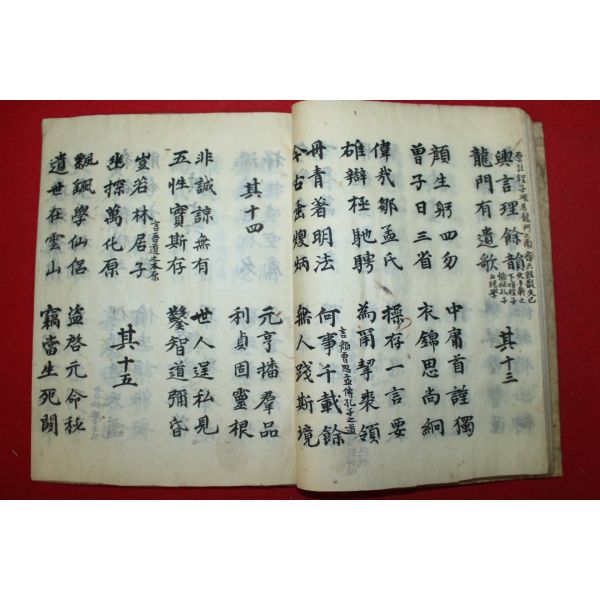 興言理餘韻
龍門有遺歌
其十三
顔生躬四勿
曾子日三省
中庸首謹獨
衣錦思尚絅
偉哉鄒孟氏
雄辯極馳騁
操存一言要
為爾挈裘領
丹青著明法
今古垂煥炳
何事千載餘
無人踐斯境
言顔曾思孟傳孔子之道
其十四
元亨播羣品
利貞固靈根
非誠諒無有
五性實斯存
世人逞私見
鑿智道彌昏
豈若林居子
幽探萬化原
言吾道之本原
其十五
飄颻學仙侶
遺世在雲山
盜啓元命秘
竊當生死關